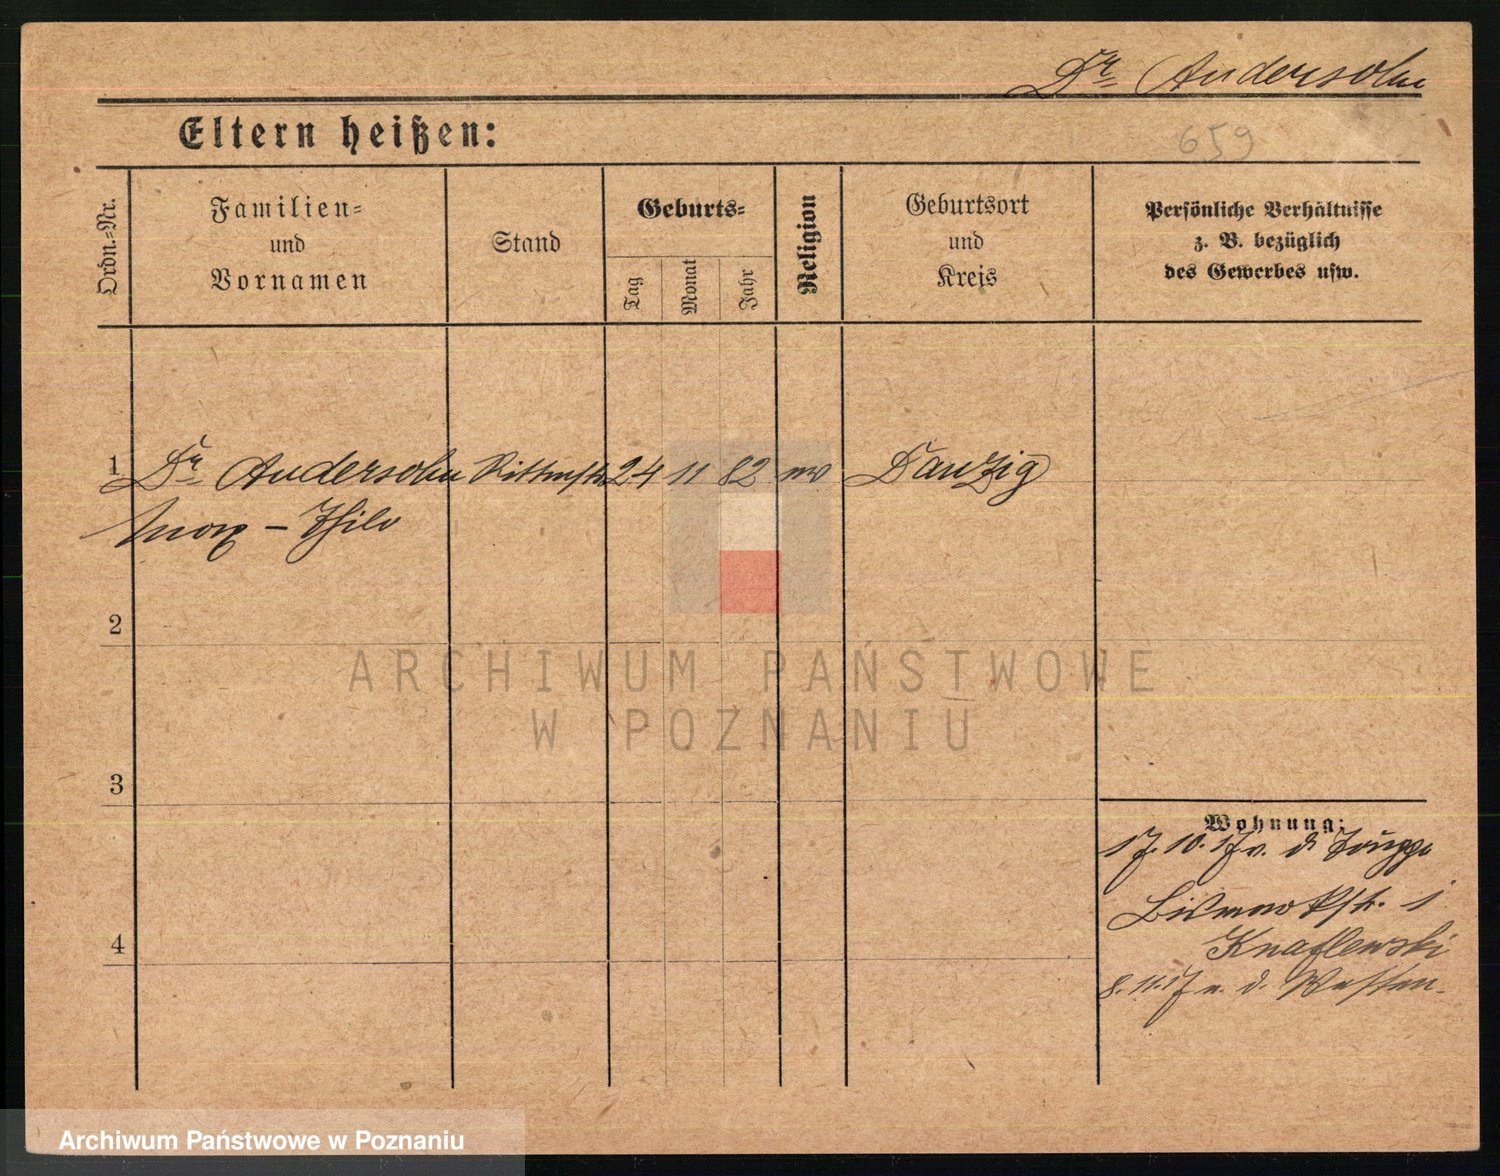 Dr. Andersohn
Eltern heißen:
659
Ordn.-Nr.
Familien-
und
Vornamen
Stand
Geburts-
Tag
Monat
Jahr
Religion
Geburtsort
und
Kreis
Persönliche Verhältnisse
z. B. bezüglich
des Gewerbes usw.
1 Dr. Andersohn 24 11 82 Danzig
Max - Thilo
2
ARCHIWUM PAŃSTWOWE
W POZNANIU
3
Wohnung:
17.10.17 v. d. Truppe
Bismarckstr. 1
Knaflewski
4
8.11.17 n. d. Westen.
Archiwum Państwowe w Poznaniu